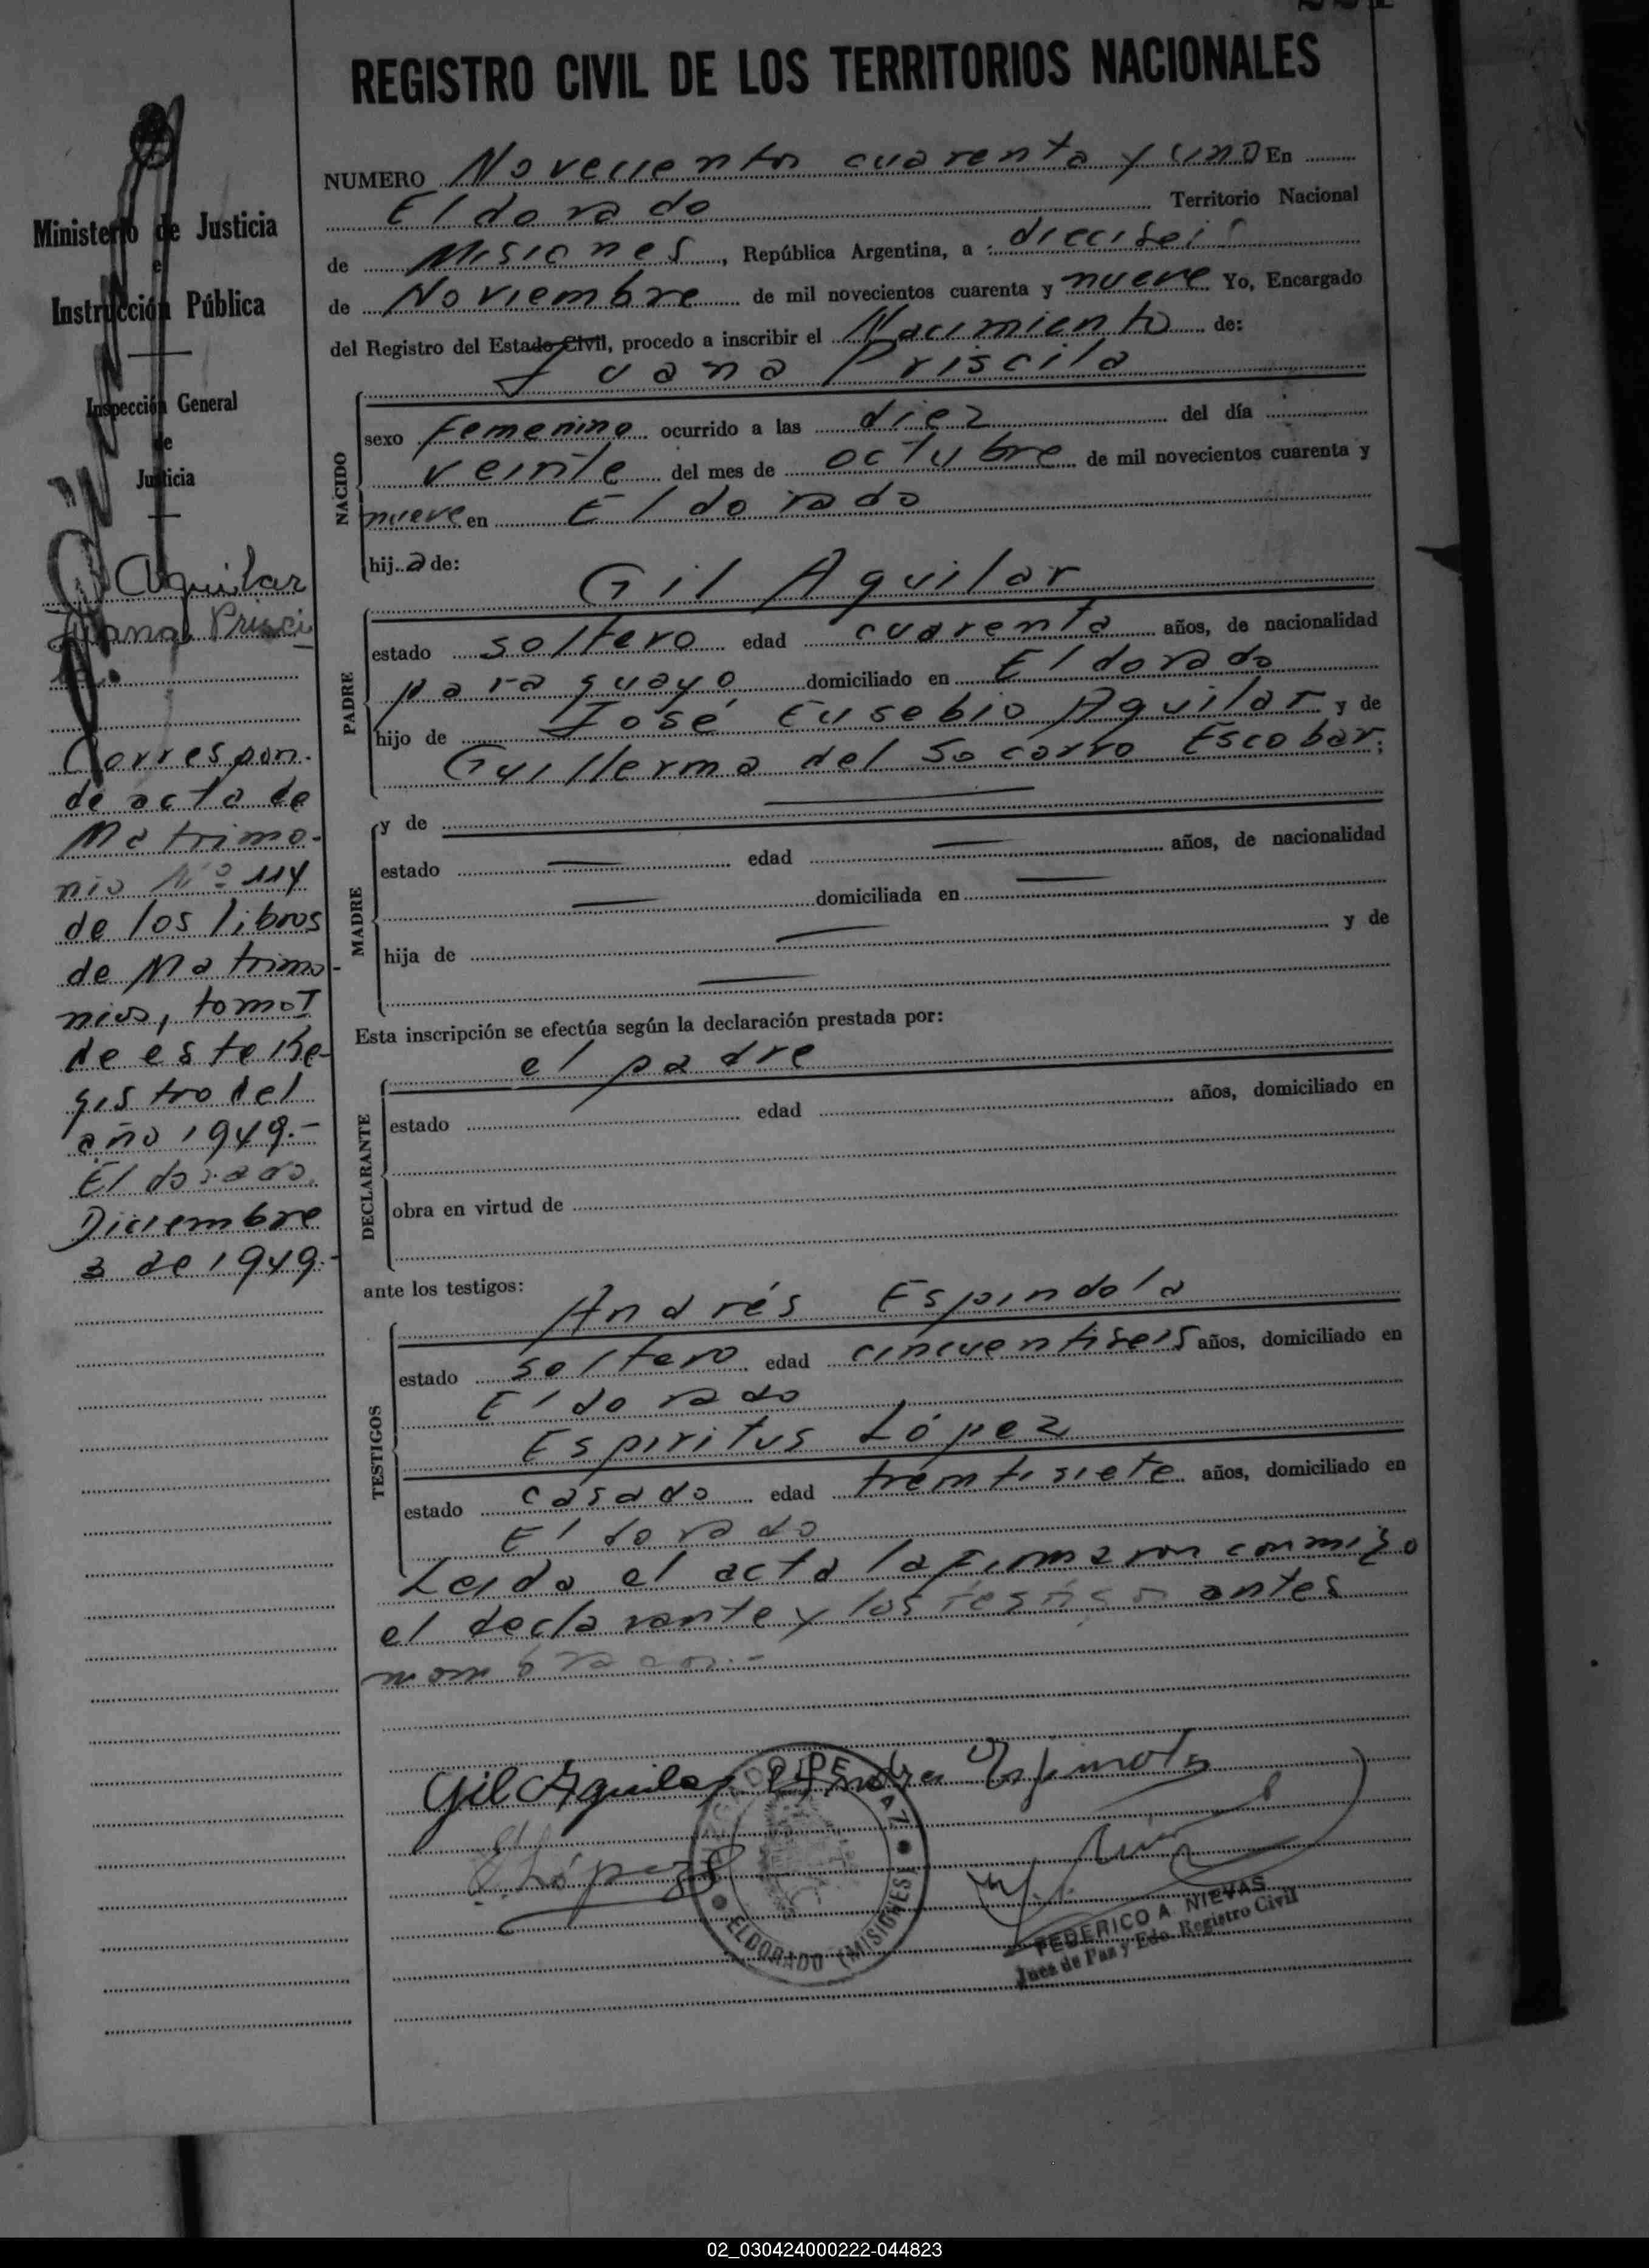 REGISTRO CIVIL DE LOS TERRITORIOS NACIONALES
NUMERO Novecientos cuarenta y uno En
Eldorado Territorio Nacional
de Misiones, República Argentina, a dieciseis
de Noviembre de mil novecientos cuarenta y nueve Yo, Encargado
del Registro del Estado Civil, procedo a inscribir el Nacimiento de:
Juana Priscila
NACIDO
sexo femenino ocurrido a las diez del día
veinte del mes de octubre de mil novecientos cuarenta y
nueve en Eldorado
hij a de:
Gil Aguilar
PADRE
estado soltero edad cuarenta años, de nacionalidad
paraguayo domiciliado en Eldorado
hijo de José Eusebio Aguilar y de
Guillerma del Socorro Escobar;
MADRE
y de
estado edad años, de nacionalidad
domiciliada en
hija de y de
Esta inscripción se efectúa según la declaración prestada por:
el padre
DECLARANTE
estado edad años, domiciliado en
obra en virtud de
ante los testigos:
Andrés Espindola
TESTIGOS
estado soltero edad cincuentiseis años, domiciliado en
Eldorado
Espiritus López
estado casado edad treintisiete años, domiciliado en
Eldorado
Leida el acta la firmaron conmigo
el declarante y los testigos antes
nombrados.-
Gil Aguilar Andres Espinola
E. López
DE PAZ
ELDORADO (MISIONES)
FEDERICO A. NIEVAS
Juez de Paz y Edo. Registro Civil
Ministerio de Justicia
e
Instrucción Pública
Inspección General
de
Justicia
Aguilar
Juana Prisci
la.
Correspon-
de acta de
Matrimo-
nio Nº 114
de los libros
de Matrimo-
nios, tomo I
de este Re-
gistro del
año 1949.-
Eldorado,
Diciembre
3 de 1949.-
02_030424000222-044823